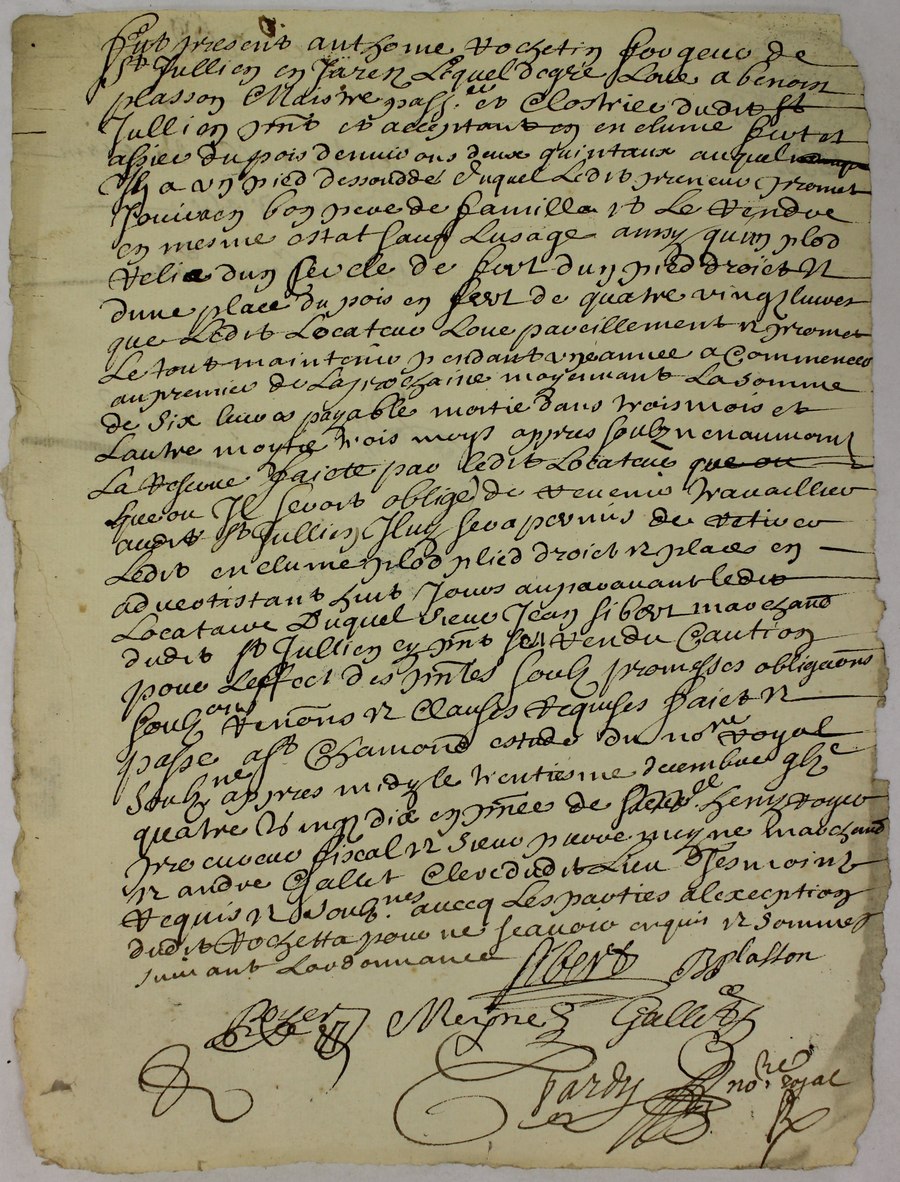 Fut present anthoine Rochetin forgeur de
St Jullien en Jarez Lequel de gré Loue a benoit
plasson Maistre pass.er et Clostrier dudit St
Jullien pnt et acceptant un enclume fert et
assier du pois denvirons deux quintaux auquel
Il y a un pied dessoudde duquel Ledit preneur promet
Jouir en bon pere de famille et Le Rendre
en mesme estat sauf Lusage aussy qu'un plod
Relié dun sercle de fert dun pied droict et
dune place du pois en fert de quatre vingtz livres
que Ledit Locateur Loue pareillement et promet
Le tout maintenir pendant une année a Commencer
au premier de La prochaine moyennant La somme
de Six livres payable moitie dans trois mois et
Lautre moytié trois moys appres soubz neaumoins
La Reserve faicte par ledit Locateur que ou
que ou Il seroit obligé de revenir travaillier
audit St Jullien Il luy sera permis de retirer
Ledit enclume plod pied droict et places en
advertistant huit Jours auparavant ledit
Locataire Duquel Sieur Jean sibert marchand
dudit St Jullien cy pnt sest rendu Caution
pour Leffect des pntes soubz promesses obligaons
soubz aons renons et Clauses requises faict et
passé a St Chamond estude du nore Royal
soubzne appres midy le trentiesme decembre gbc
quatre vingt dix en pnces de henry royer
procureur fiscal et Sieur pierre meyne marchand
et andré Gallet Clerc dudit Lieu Tesmoins
Requis et soubznes avecq Les parties a lexception
dudit Rochetta pour ne scavoir enquis et sommes
suivant Lordonnance
Sibert BPlasson
Royer Meyne Gallet
Pardy nore royal